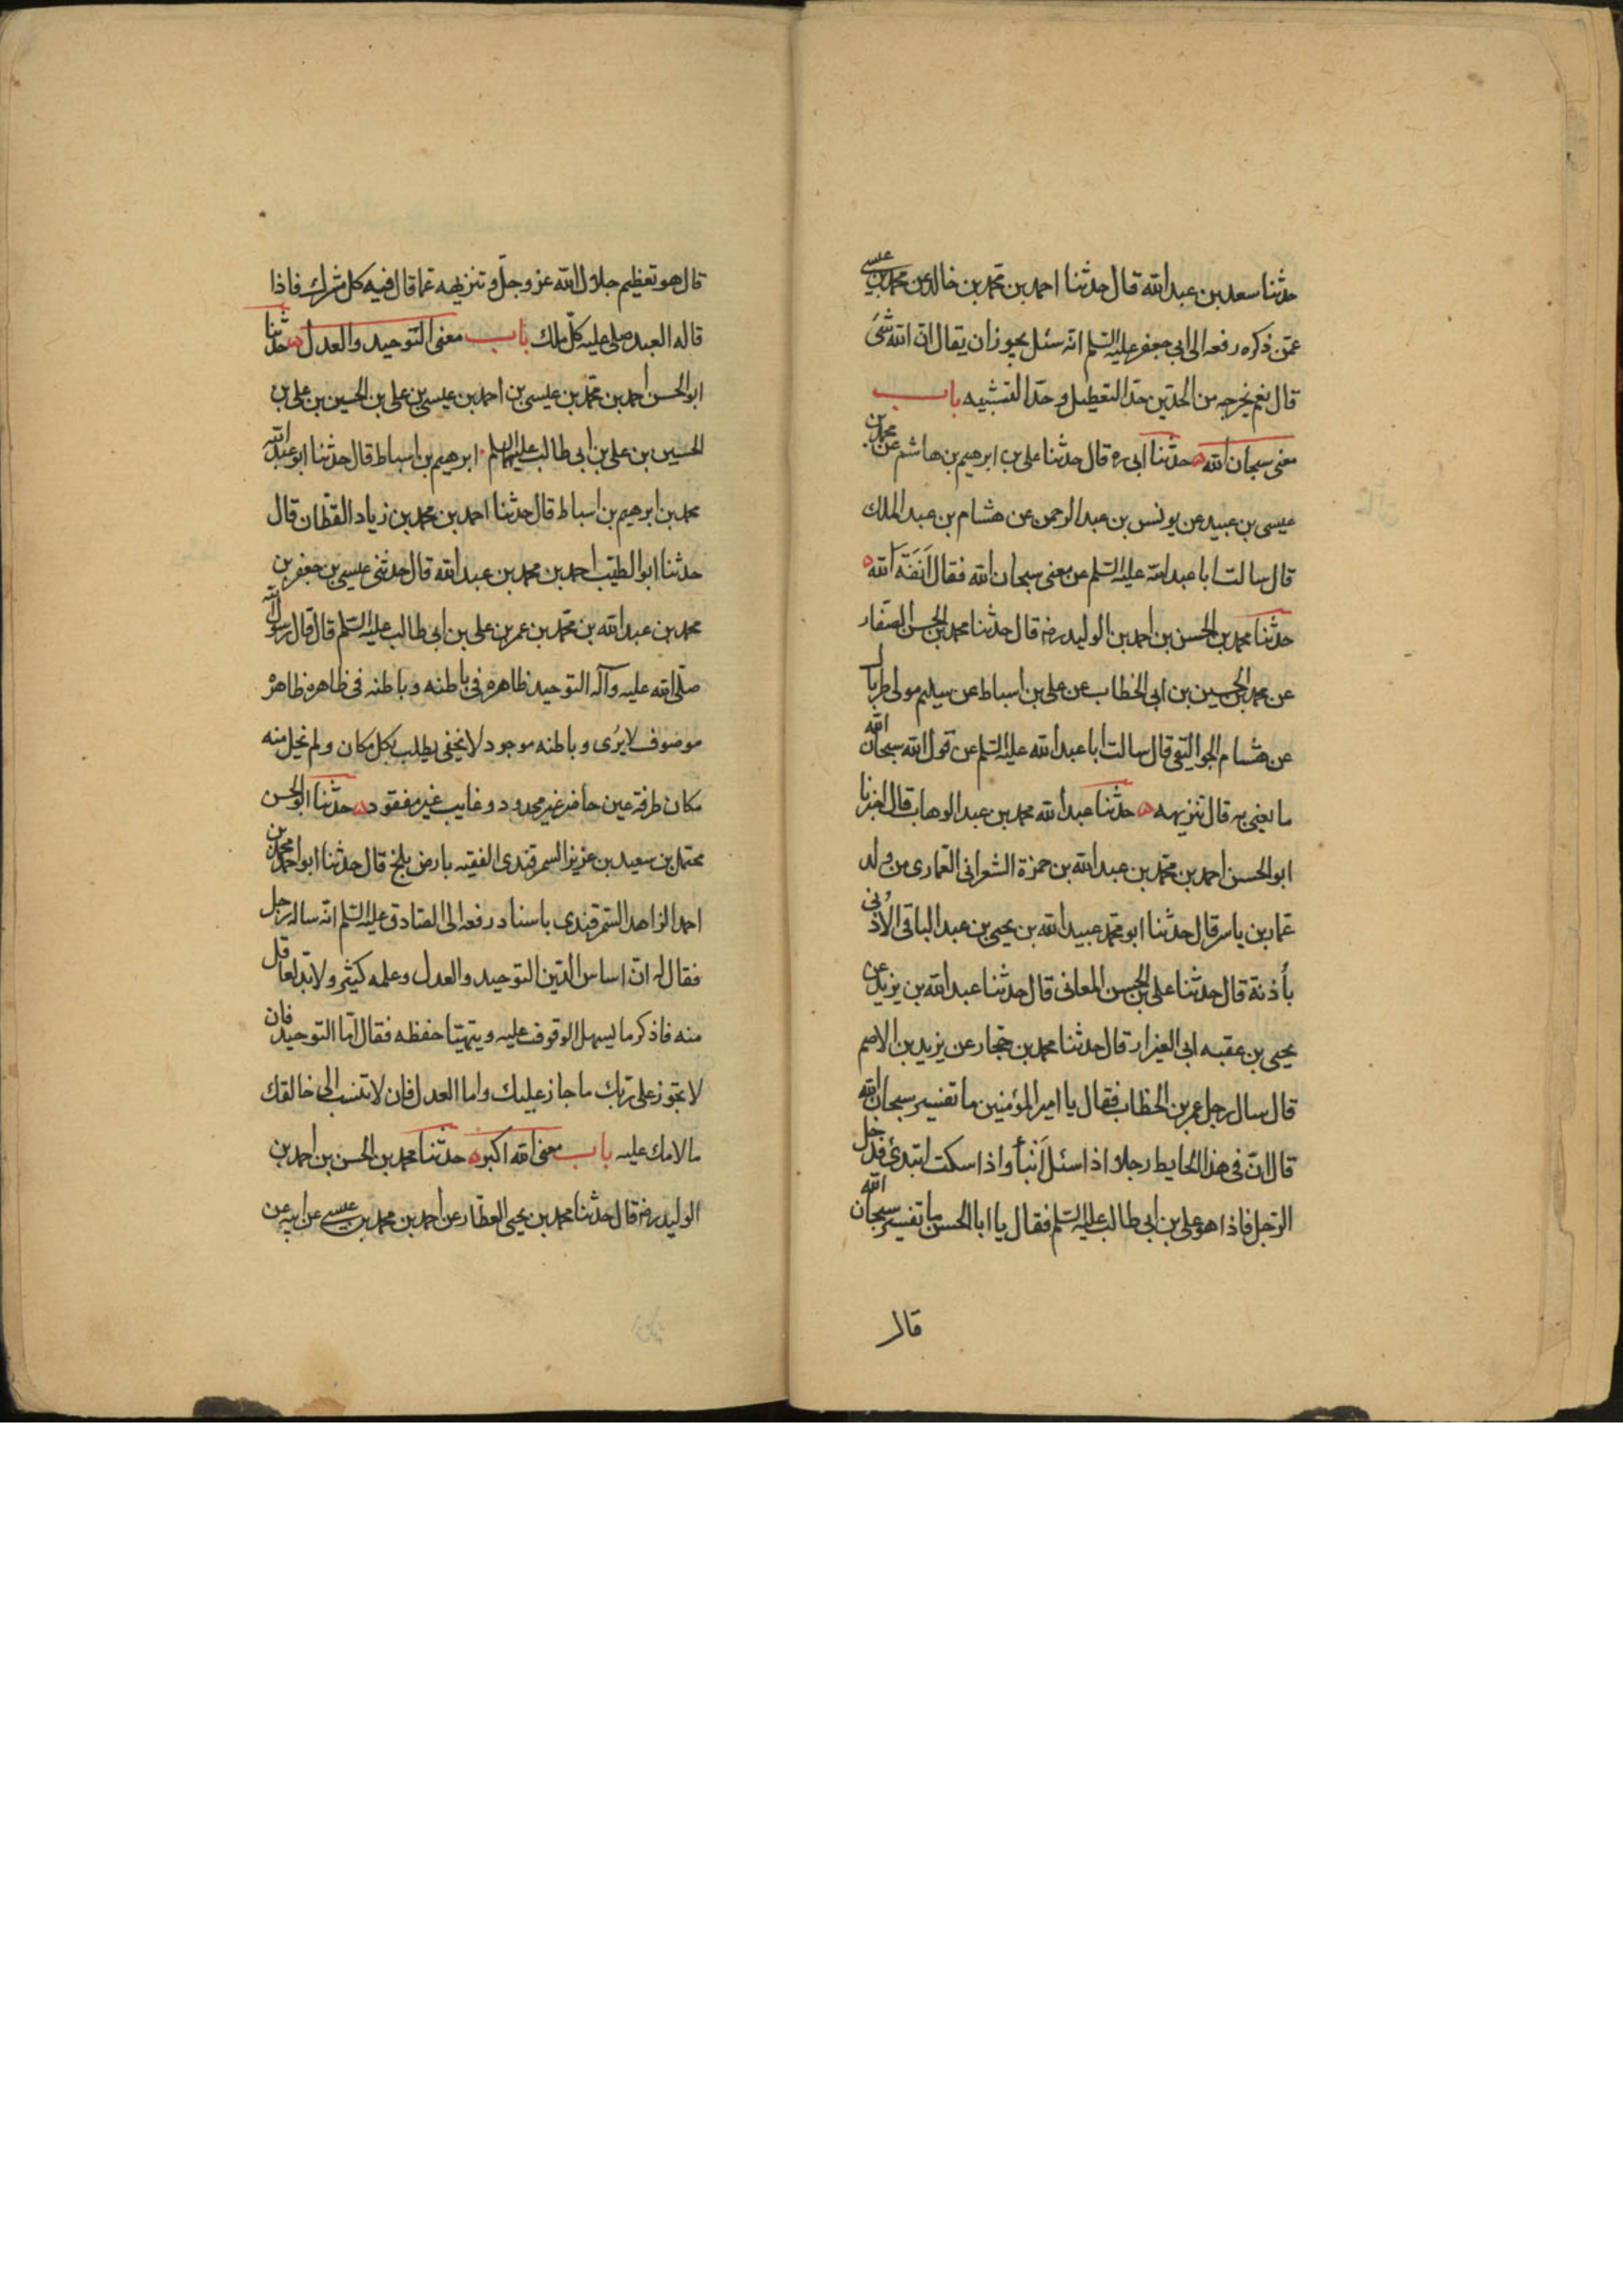 حدثنا سعد بن عبد الله قال حدثنا احمد بن محمد بن خالد عن محمد بن عيسى
عمّن ذكره رفعه الى ابي جعفر عليه السلم انه سئل يجوز ان يقال انّ الله شئ
قال نعم يخرجه من الحدّين حدّ التعطيل وحدّ التشبيه باب
معنى سبحان الله حدثنا ابي ره قال حدثنا علي بن ابرهيم بن هاشم عن محمد بن
عيسى بن عبيد عن يونس بن عبد الرحمن عن هشام بن عبد الملك
قال سالت ابا عبد الله عليه السلم عن معنى سبحان الله فقال اَنَفَة الله
حدثنا محمد بن الحسن بن احمد بن الوليد رضه قال حدثنا محمد بن الحسن الصفار
عن محمد بن الحسين بن ابي الخطاب عن علي بن اسباط عن سليم مولى طربال
عن هشام الجواليقي قال سالت ابا عبد الله عليه السلم عن قول الله سبحان الله
ما يعني به قال تنزيهه حدثنا عبد الله محمد بن عبد الوهاب قال اخبرنا
ابو الحسن احمد بن محمد بن عبد الله بن حمزة الشعراني العماري من ولد
عمار بن ياسر قال حدثنا ابو محمد عبيد الله بن يحيى بن عبد الباقي الاُذني
بأذنة قال حدثنا علي بن الحسن المعاني قال حدثنا عبد الله بن يزيد عن
يحيى بن عقبه ابي العيزار قال حدثنا محمد بن حجار عن يزيد بن الاصم
قال سال رجل عمر بن الخطاب فقال يا امير المؤمنين ما تفسير سبحان الله
قال انّ في هذا الحايط رجلا اذا سئل اَنبأ واذا سكت ابتدئ فدخل
الرجل فاذا هو علي بن ابي طالب عليه السلم فقال يا ابا الحسن ما تفسير سبحان الله
قال
قال هو تعظيم جلال الله عز وجلّ وتنزيهه عمّا قال فيه كل مشرك فاذا
قاله العبد صلى عليه كلّ ملك باب معنى التوحيد والعدل حدثنا
ابو الحسن احمد بن محمد بن عيسى بن احمد بن عيسى بن علي بن الحسين بن علي بن
الحسين بن علي بن ابي طالب عليهم السلم ابرهيم بن اسباط قال حدثنا ابو عبد الله
محمد بن ابرهيم بن اسباط قال حدثنا احمد بن محمد بن زياد القطان قال
حدثنا ابو الطيّب احمد بن محمد بن عبد الله قال حدثني عيسى بن جعفر بن
محمد بن عبد الله بن محمد بن عمر بن علي بن ابي طالب عليه السلم قال قال رسول الله
صلّى الله عليه وآله التوحيد ظاهره في باطنه وباطنه في ظاهره ظاهره
موصوف لا يُرى وباطنه موجود لا يخفى يطلب بكل مكان ولم يخل منه
مكان طرفة عين حاضر غير محدود وغايب غير مفقود حدثنا ابو الحسن
محمد بن سعيد بن عزيز السمرقندي الفقيه بارض بلخ قال حدثنا ابو احمد محمد بن
احمد الزاهد السمرقندي باسناد رفعه الى الصادق عليه السلم انّه ساله رجل
فقال له انّ اساس الدين التوحيد والعدل وعلمه كثير ولا بدّ لعاقل
منه فاذكر ما يسهل الوقوف عليه ويتهيّا حفظه فقال امّا التوحيد فان
لا تجوز على ربّك ما جاز عليك واما العدل فان لا تنسب الى خالقك
ما لامك عليه باب معنى الله اكبر حدثنا محمد بن الحسن بن احمد بن
الوليد رضه قال حدثنا محمد بن يحيى العطار عن احمد بن محمد بن عيسى عن ابيه عن